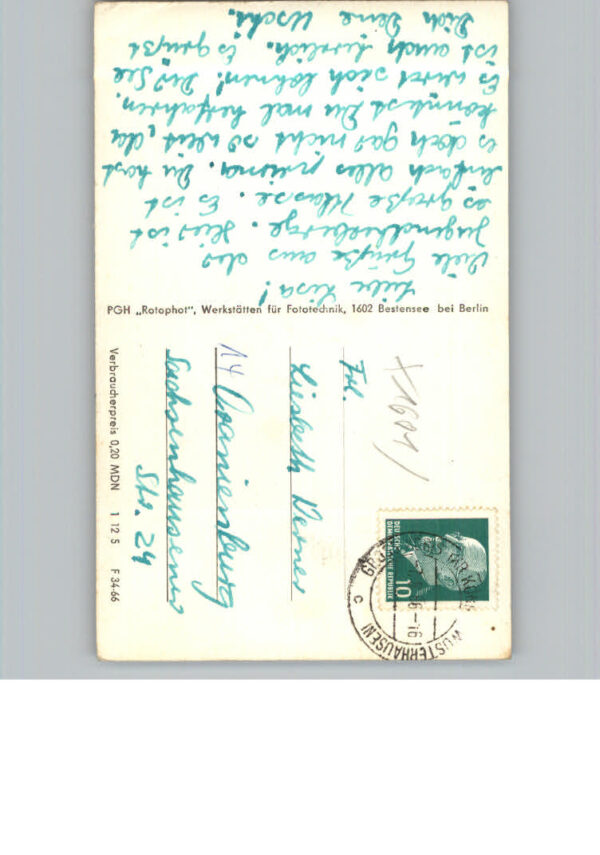 Liebe Lisa!
Viele Grüße aus der
Jugendherberge. Hier ist
es große Klasse. Es ist
einfach alles prima. Du hast
es doch gar nicht so weit, da
könntest Du mal herfahren.
Es wird sich lohnen! Der See
ist auch herrlich. Es grüßt
Dich Deine Uschi.
PGH „Rotophot", Werkstätten für Fototechnik, 1602 Bestensee bei Berlin
X1601/
Frl.
Liesbeth Werner
14 Oranienburg
Sachsenhausener
Str. 24
Verbraucherpreis 0,20 MDN 1 12 5 F 34-66
DEUTSCHE
DEMOKRATISCHE REPUBLIK
10
WUSTERHAUSEN)
c